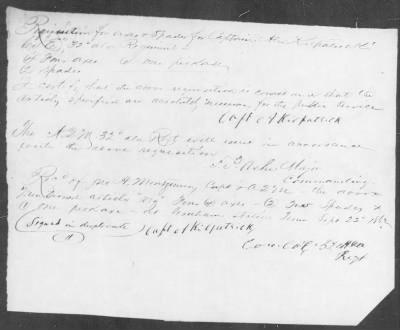 Requisition for axes & Spades for Captain A Kilpatrick
Co "C" 32d ala Regiment
4 Four axes 1 one pickaxe
2 Spades
I certify that the above requisition is correct and that the
articles specified are absolutely necessary for the public service
Capt A Kilpatrick
The A.Q.M. 32d ala Regt will issue in accordance
with the above requisition
Ashe Major
Commanding
Recd of A. Montgomery Capt & A.Q.M. the above
articles Four (4) axes - (2) Two Spades &
(1) one pickaxe - at Tenn Sept 22d 1862
(Signed in duplicate) Capt A Kilpatrick
Com. Co C 32 Ala
Regt